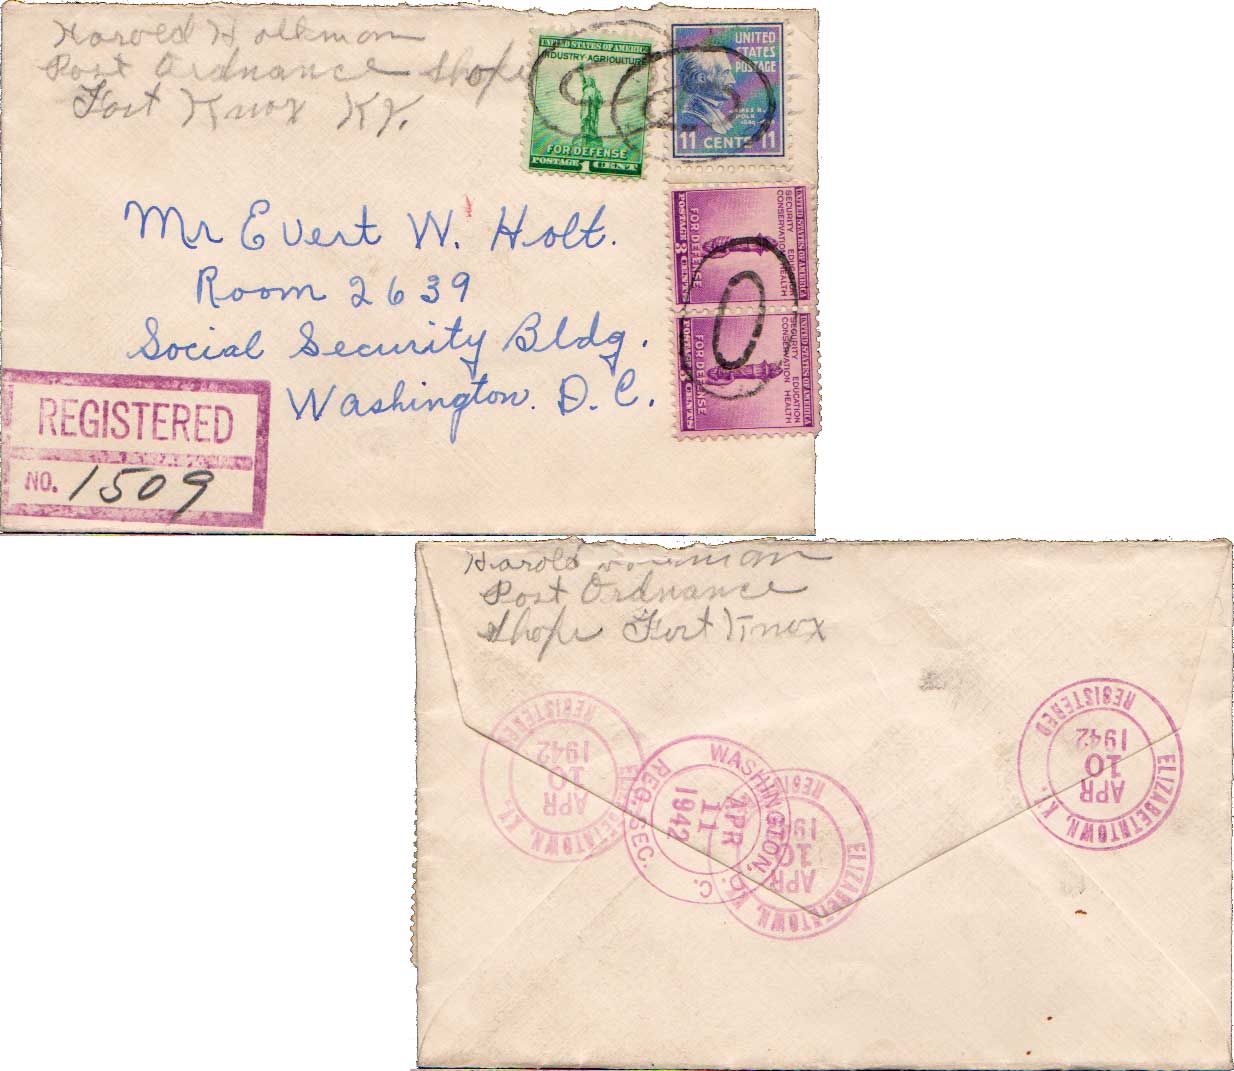 Harold Holkman
Post Ordnance Shope
Fort Knox Ky.
UNITED STATES OF AMERICA
INDUSTRY AGRICULTURE
FOR DEFENSE
POSTAGE 1 CENT
UNITED
STATES
POSTAGE
JAMES K.
POLK
11 CENTS 11
UNITED STATES OF AMERICA
SECURITY EDUCATION
CONSERVATION HEALTH
FOR DEFENSE
POSTAGE 3 CENTS
UNITED STATES OF AMERICA
SECURITY EDUCATION
CONSERVATION HEALTH
FOR DEFENSE
POSTAGE 3 CENTS
Mr Evert W. Holt.
Room 2639
Social Security Bldg.
Washington. D. C.
REGISTERED
NO. 1509
Harold
Post Ordnance
Shope Fort Knox
ELIZABETHTOWN, KY.
APR
10
1942
REGISTERED
WASHINGTON, D. C.
APR
11
1942
REG. SEC.
ELIZABETHTOWN, KY.
APR
10
19
REGIS
ELIZABETHTOWN, KY.
APR
10
1942
REGISTERED